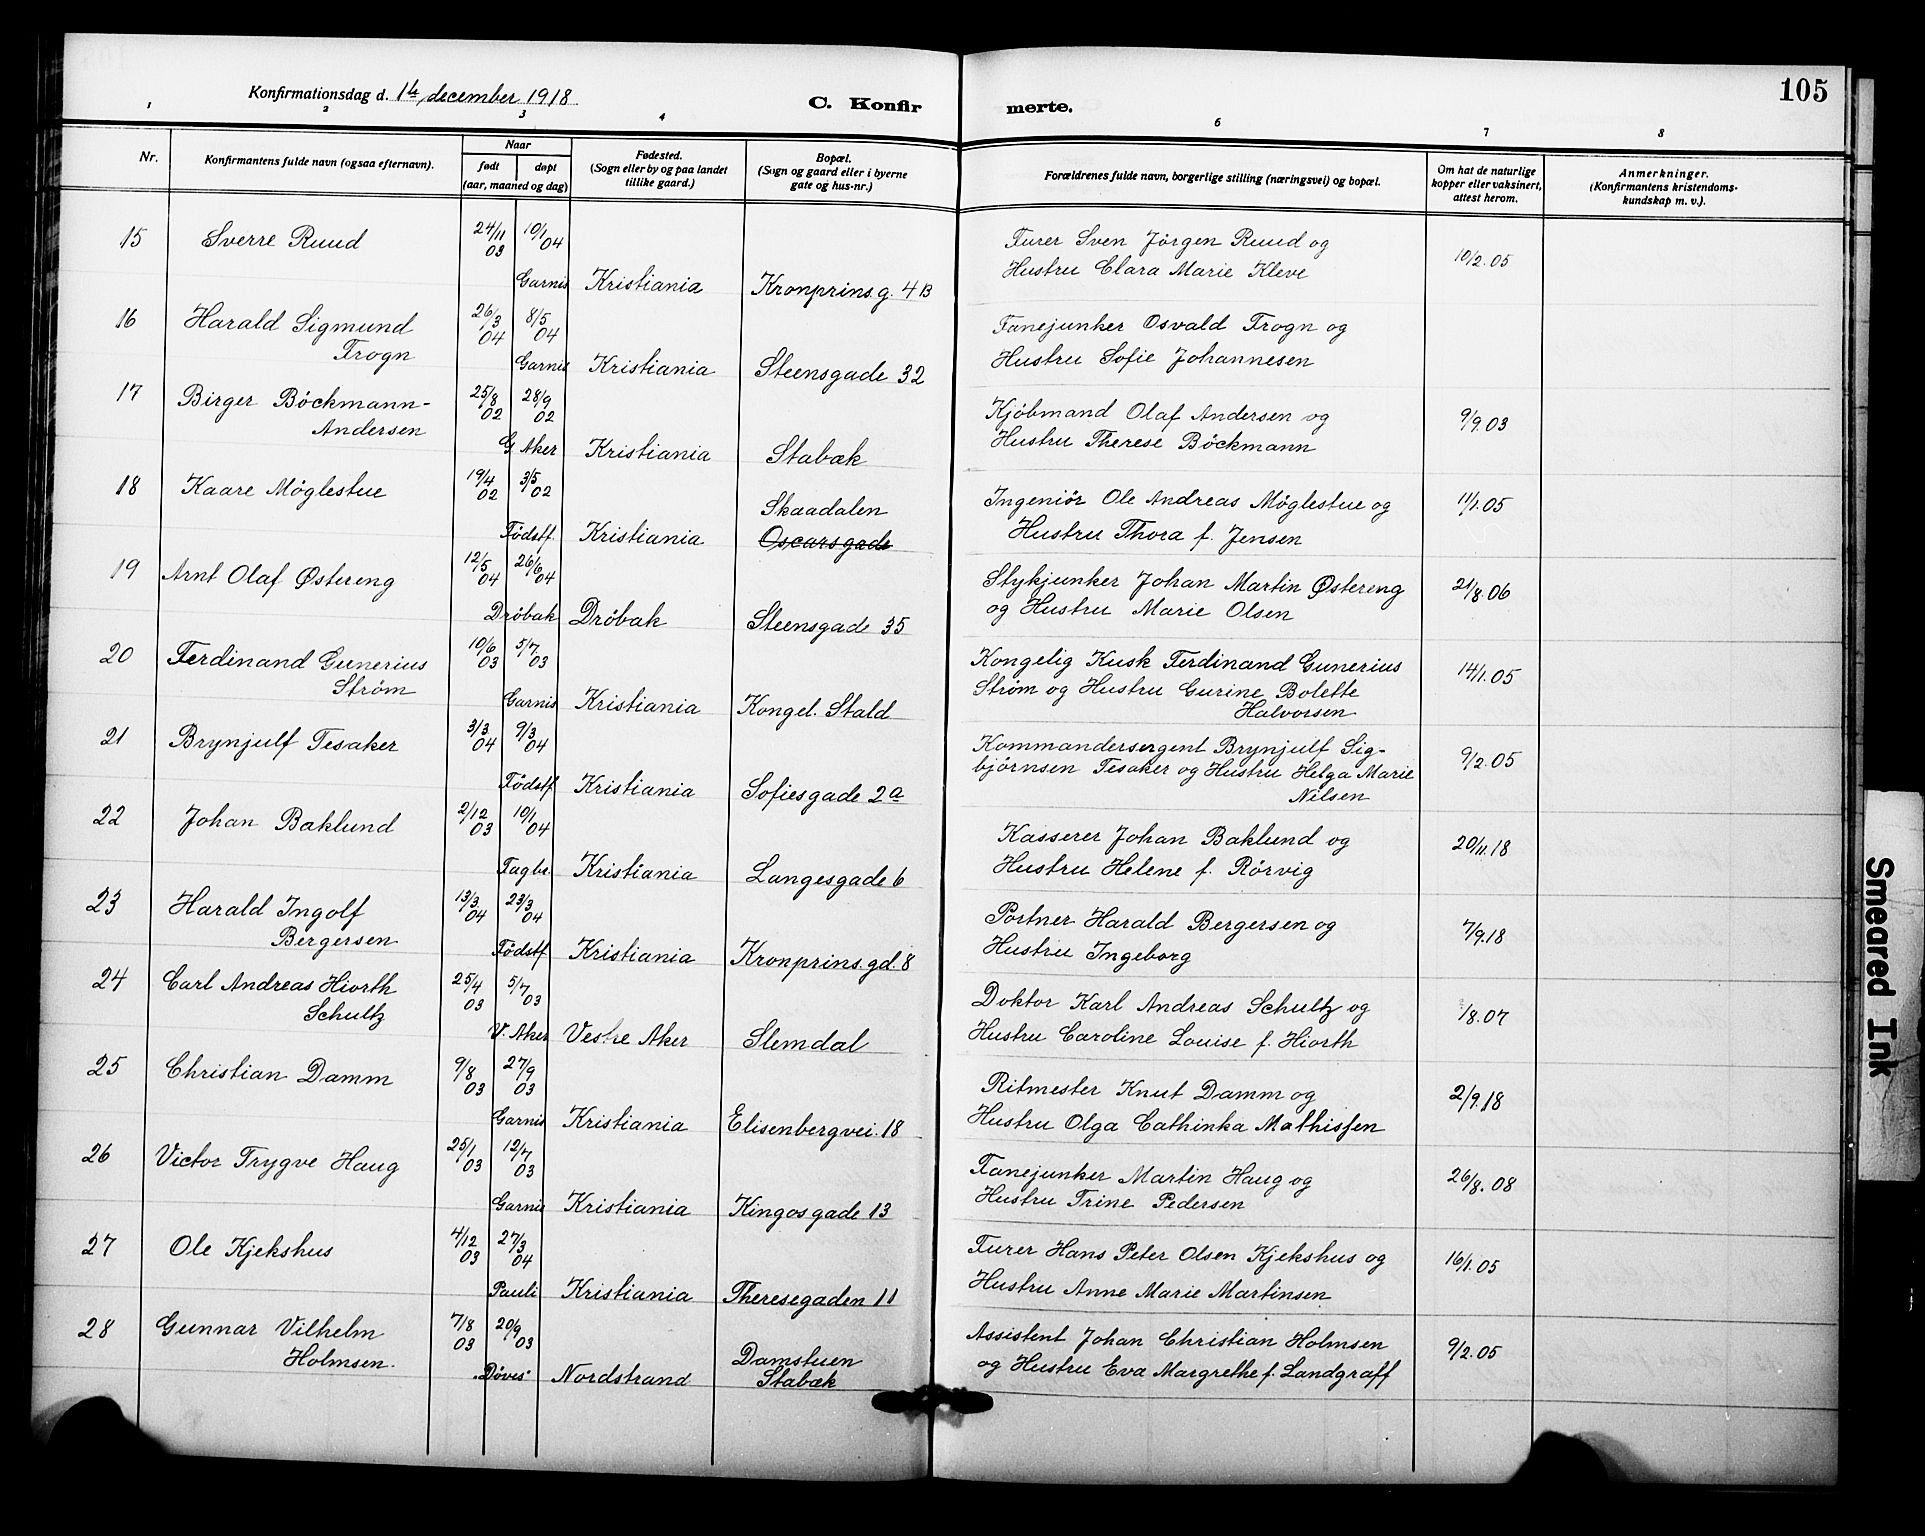 105
Konfirmationsdag d. 1ste december 1918
C. Konfirmerte.
1 2 3 4 6 7 8
Nr. Konfirmantens fulde navn (ogsaa efternavn). Naar født døpt (aar, maaned og dag) Fødested. (Sogn eller by og paa landet tillike gaard.) Bopæl. (Sogn og gaard eller i byerne gate og hus-nr.) Forældrenes fulde navn, borgerlige stilling (næringsvei) og bopæl. Om hat de naturlige kopper eller vaksinert, attest herom. Anmerkninger. (Konfirmantens kristendomskundskap m. v.).
15 Sverre Ruud 24/11 03 10/1 04 Furer Sven Jörgen Ruud og
Garnis Kristiania Kronprins.g. 4B Hustru Clara Marie Kleve 10/2.05
16 Harald Sigmund 26/3 04 8/5 04 Fanejunker Osvald Trogn og
Trogn Garnis Kristiania Steensgade 32 Hustru Sofie Johannesen
17 Birger Böckmann- 25/8 02 28/9 02 Kjöbmand Olaf Andersen og
Andersen G. Aker Kristiania Stabæk Hustru Therese Böckmann 9/9.03
18 Kaare Möglestue 19/4 02 3/5 02 Skaadalen Ingeniör Ole Andreas Möglestue og
Födstf. Kristiania Oscarsgade Hustru Thora f. Jensen 11/1.05
19 Arnt Olaf Østereng 12/5 04 26/6 04 Stykjunker Johan Martin Østereng
Dröbak Dröbak Steensgade 35 og Hustru Marie Olsen 21/8.06
20 Ferdinand Gunerius 10/6 03 5/7 03 Kongelig Kusk Ferdinand Gunerius
Ström Garnis Kristiania Kongel. Stald Ström og Hustru Gurine Bolette 14/1.05
Halvorsen
21 Brynjulf Tesaker 3/3 04 9/3 04 Kommandersergent Brynjulf Sig-
Födstf Kristiania Sofiesgade 2a björnsen Tesaker og Hustru Helga Marie 9/2.05
Nilsen
22 Johan Baklund 2/12 03 10/1 04 Kasserer Johan Baklund og
Fagbe. Kristiania Langesgade 6 Hustru Helene f. Rörvig 20/11.18
23 Harald Ingolf 13/3 04 23/3 04 Portner Harald Bergersen og
Bergersen Födstf Kristiania Kronprins.gd. 8 Hustru Ingeborg 7/9.18
24 Carl Andreas Hiorth 25/4 03 5/7 03 Doktor Karl Andreas Schultz og
Schultz V. Aker Vestre Aker Slemdal Hustru Caroline Louise f. Hiorth /8.07
25 Christian Damm 9/8 03 27/9 03 Ritmester Knut Damm og
Garnis Kristiania Elisenbergvei. 18 Hustru Olga Cathinka Mathissen 2/9.18
26 Victor Trygve Haug 25/1 03 12/7 03 Fanejunker Martin Haug og
Garnis Kristiania Kingosgade 13 Hustru Trine Pedersen 26/8.08
27 Ole Kjekshus 4/12 03 27/3 04 Furer Hans Peter Olsen Kjekshus og
Pauli Kristiania Theresegaden 11 Hustru Anne Marie Martinsen 16/1.05
28 Gunnar Vilhelm 7/8 03 20/9 03 Damstuen Assistent Johan Christian Holmsen
Holmsen. "Döves" Nordstrand Stabæk og Hustru Eva Margrethe f. Landgraff 9/2.05
Smeared Ink